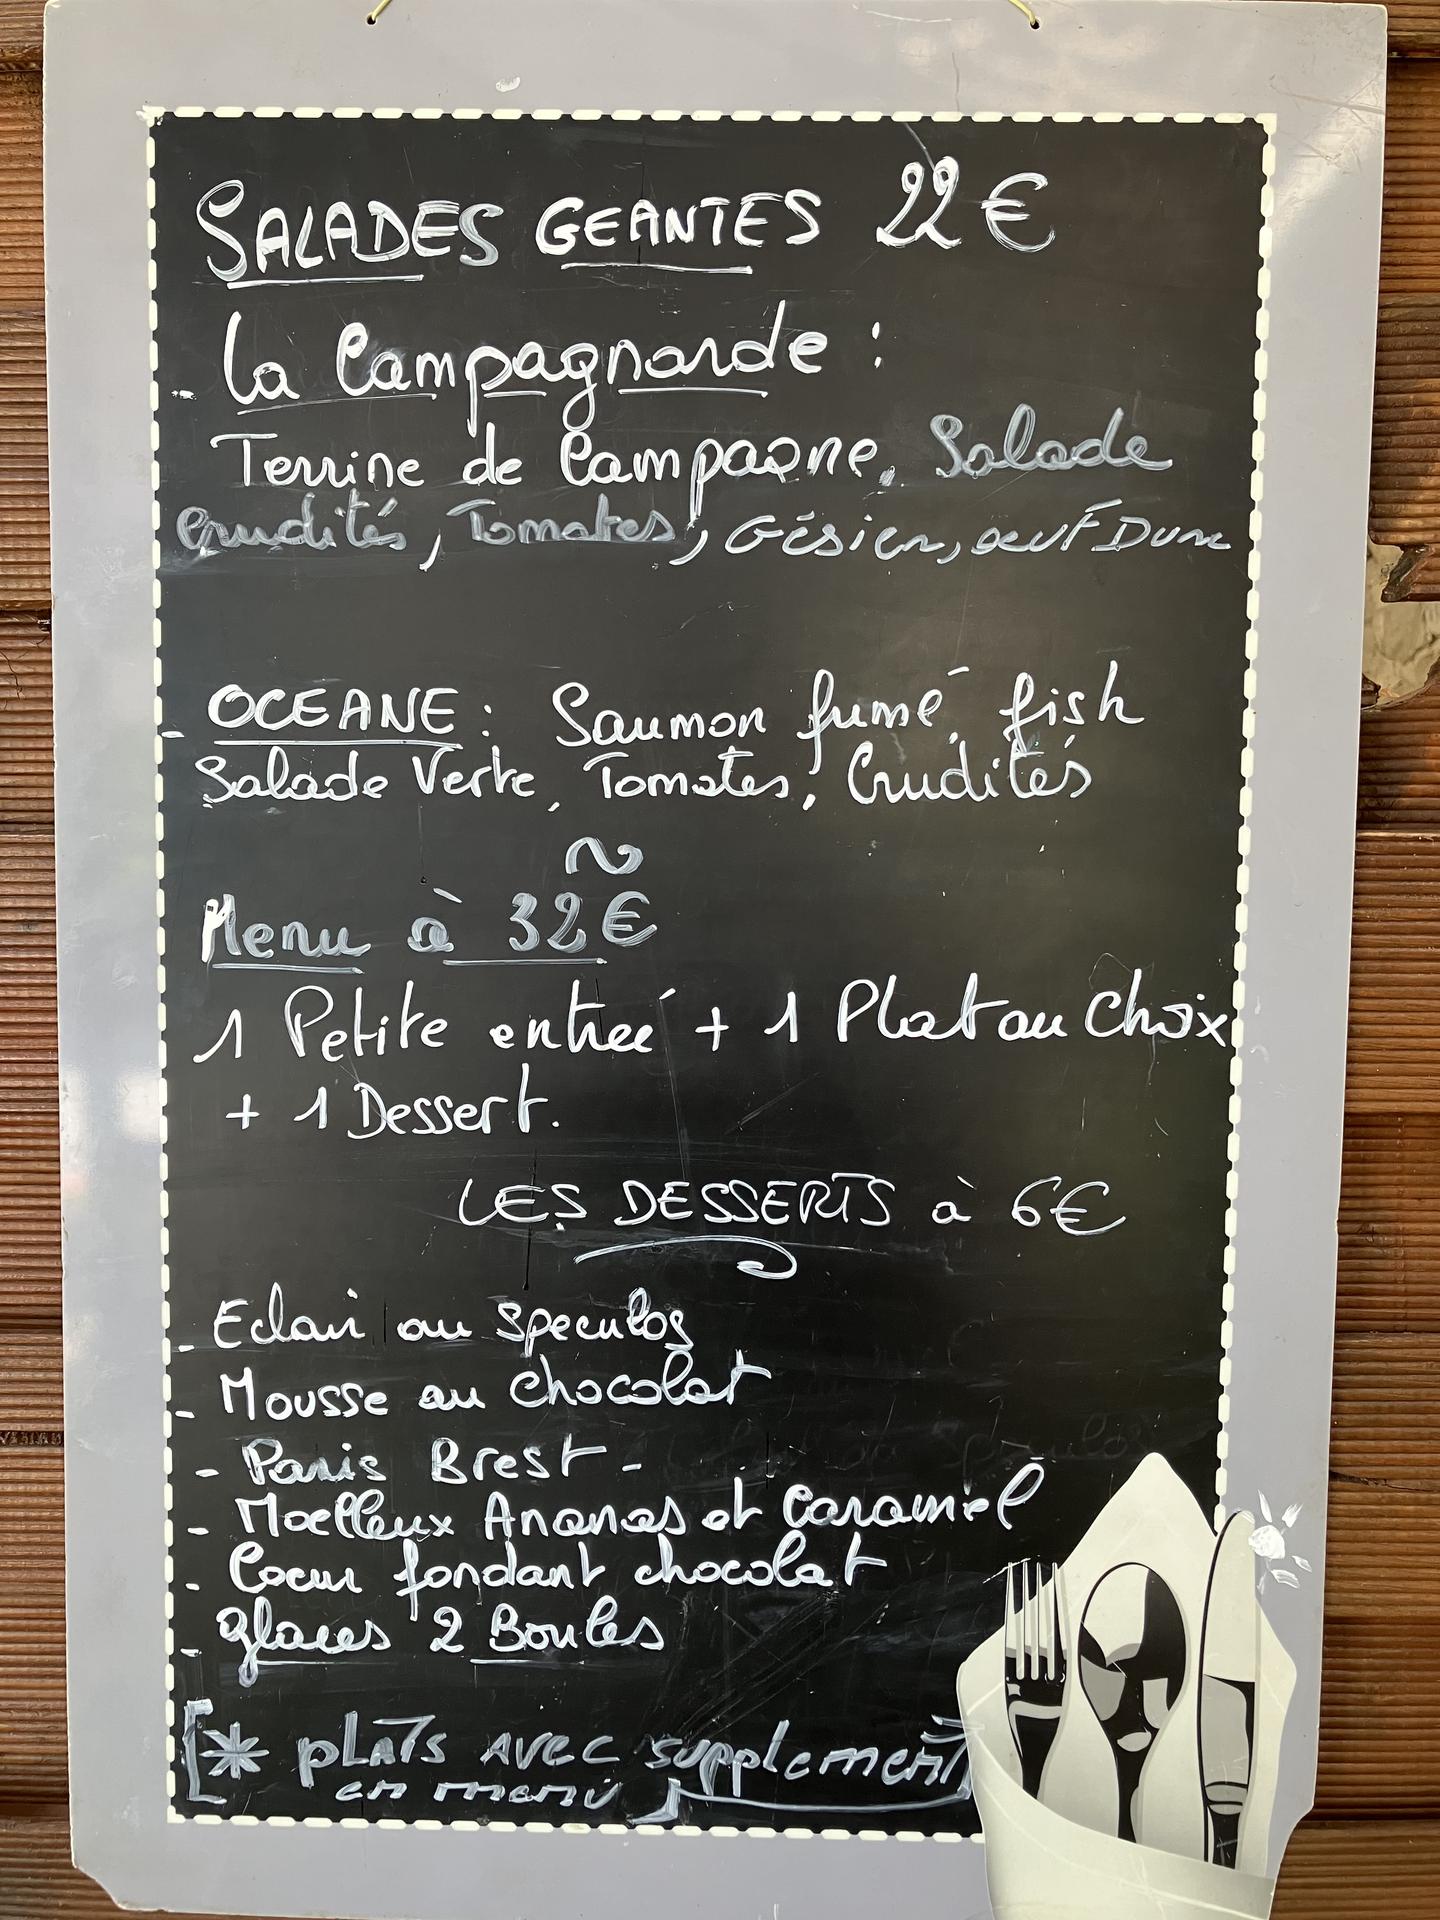 SALADES GEANTES 22€
- La Campagnarde :
Terrine de Campagne, Salade
Crudités, Tomates, Gésier, oeuf Dur
- OCEANE : Saumon fumé, fish
Salade Verte, Tomates, Crudités
~
Menu à 32€
1 Petite entreé + 1 Plat au Choix
+ 1 Dessert.
LES DESSERTS à 6€
- Eclair au Speculos
- Mousse au chocolat
- Paris Brest -
- Moelleux Ananas et Caramel
- Coeur fondant chocolat
- glaces 2 Boules
[* plats avec supplement
en menu]